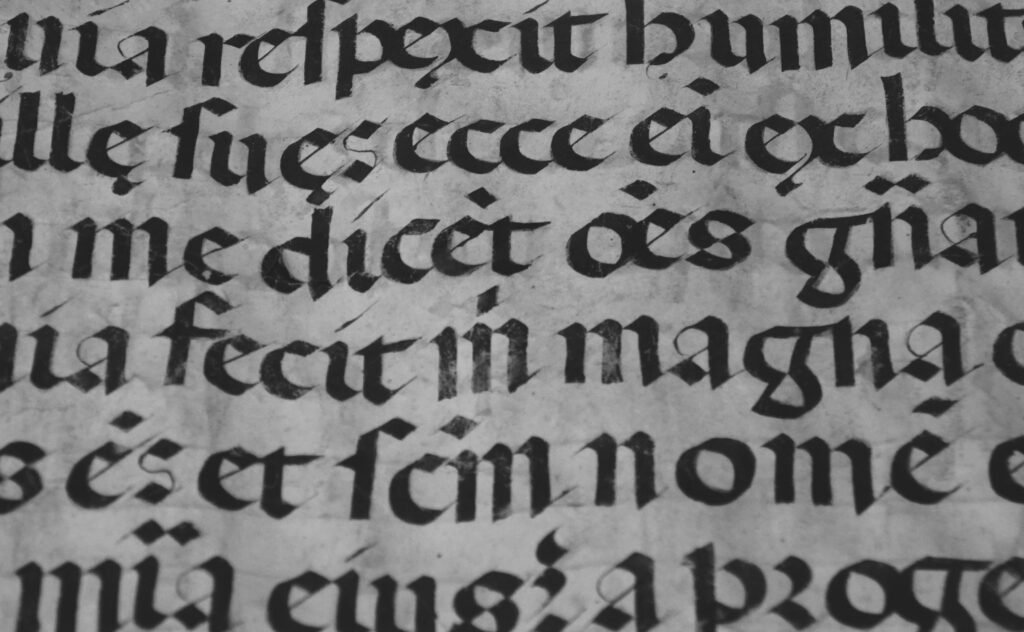 uia respexit humilit
illę suęs ecce ei ex hoc
n me dicēt oēs gñar
uia fecit m̄ magna q
s ēs et scm̄ nomē e
mı̈a eius a proge